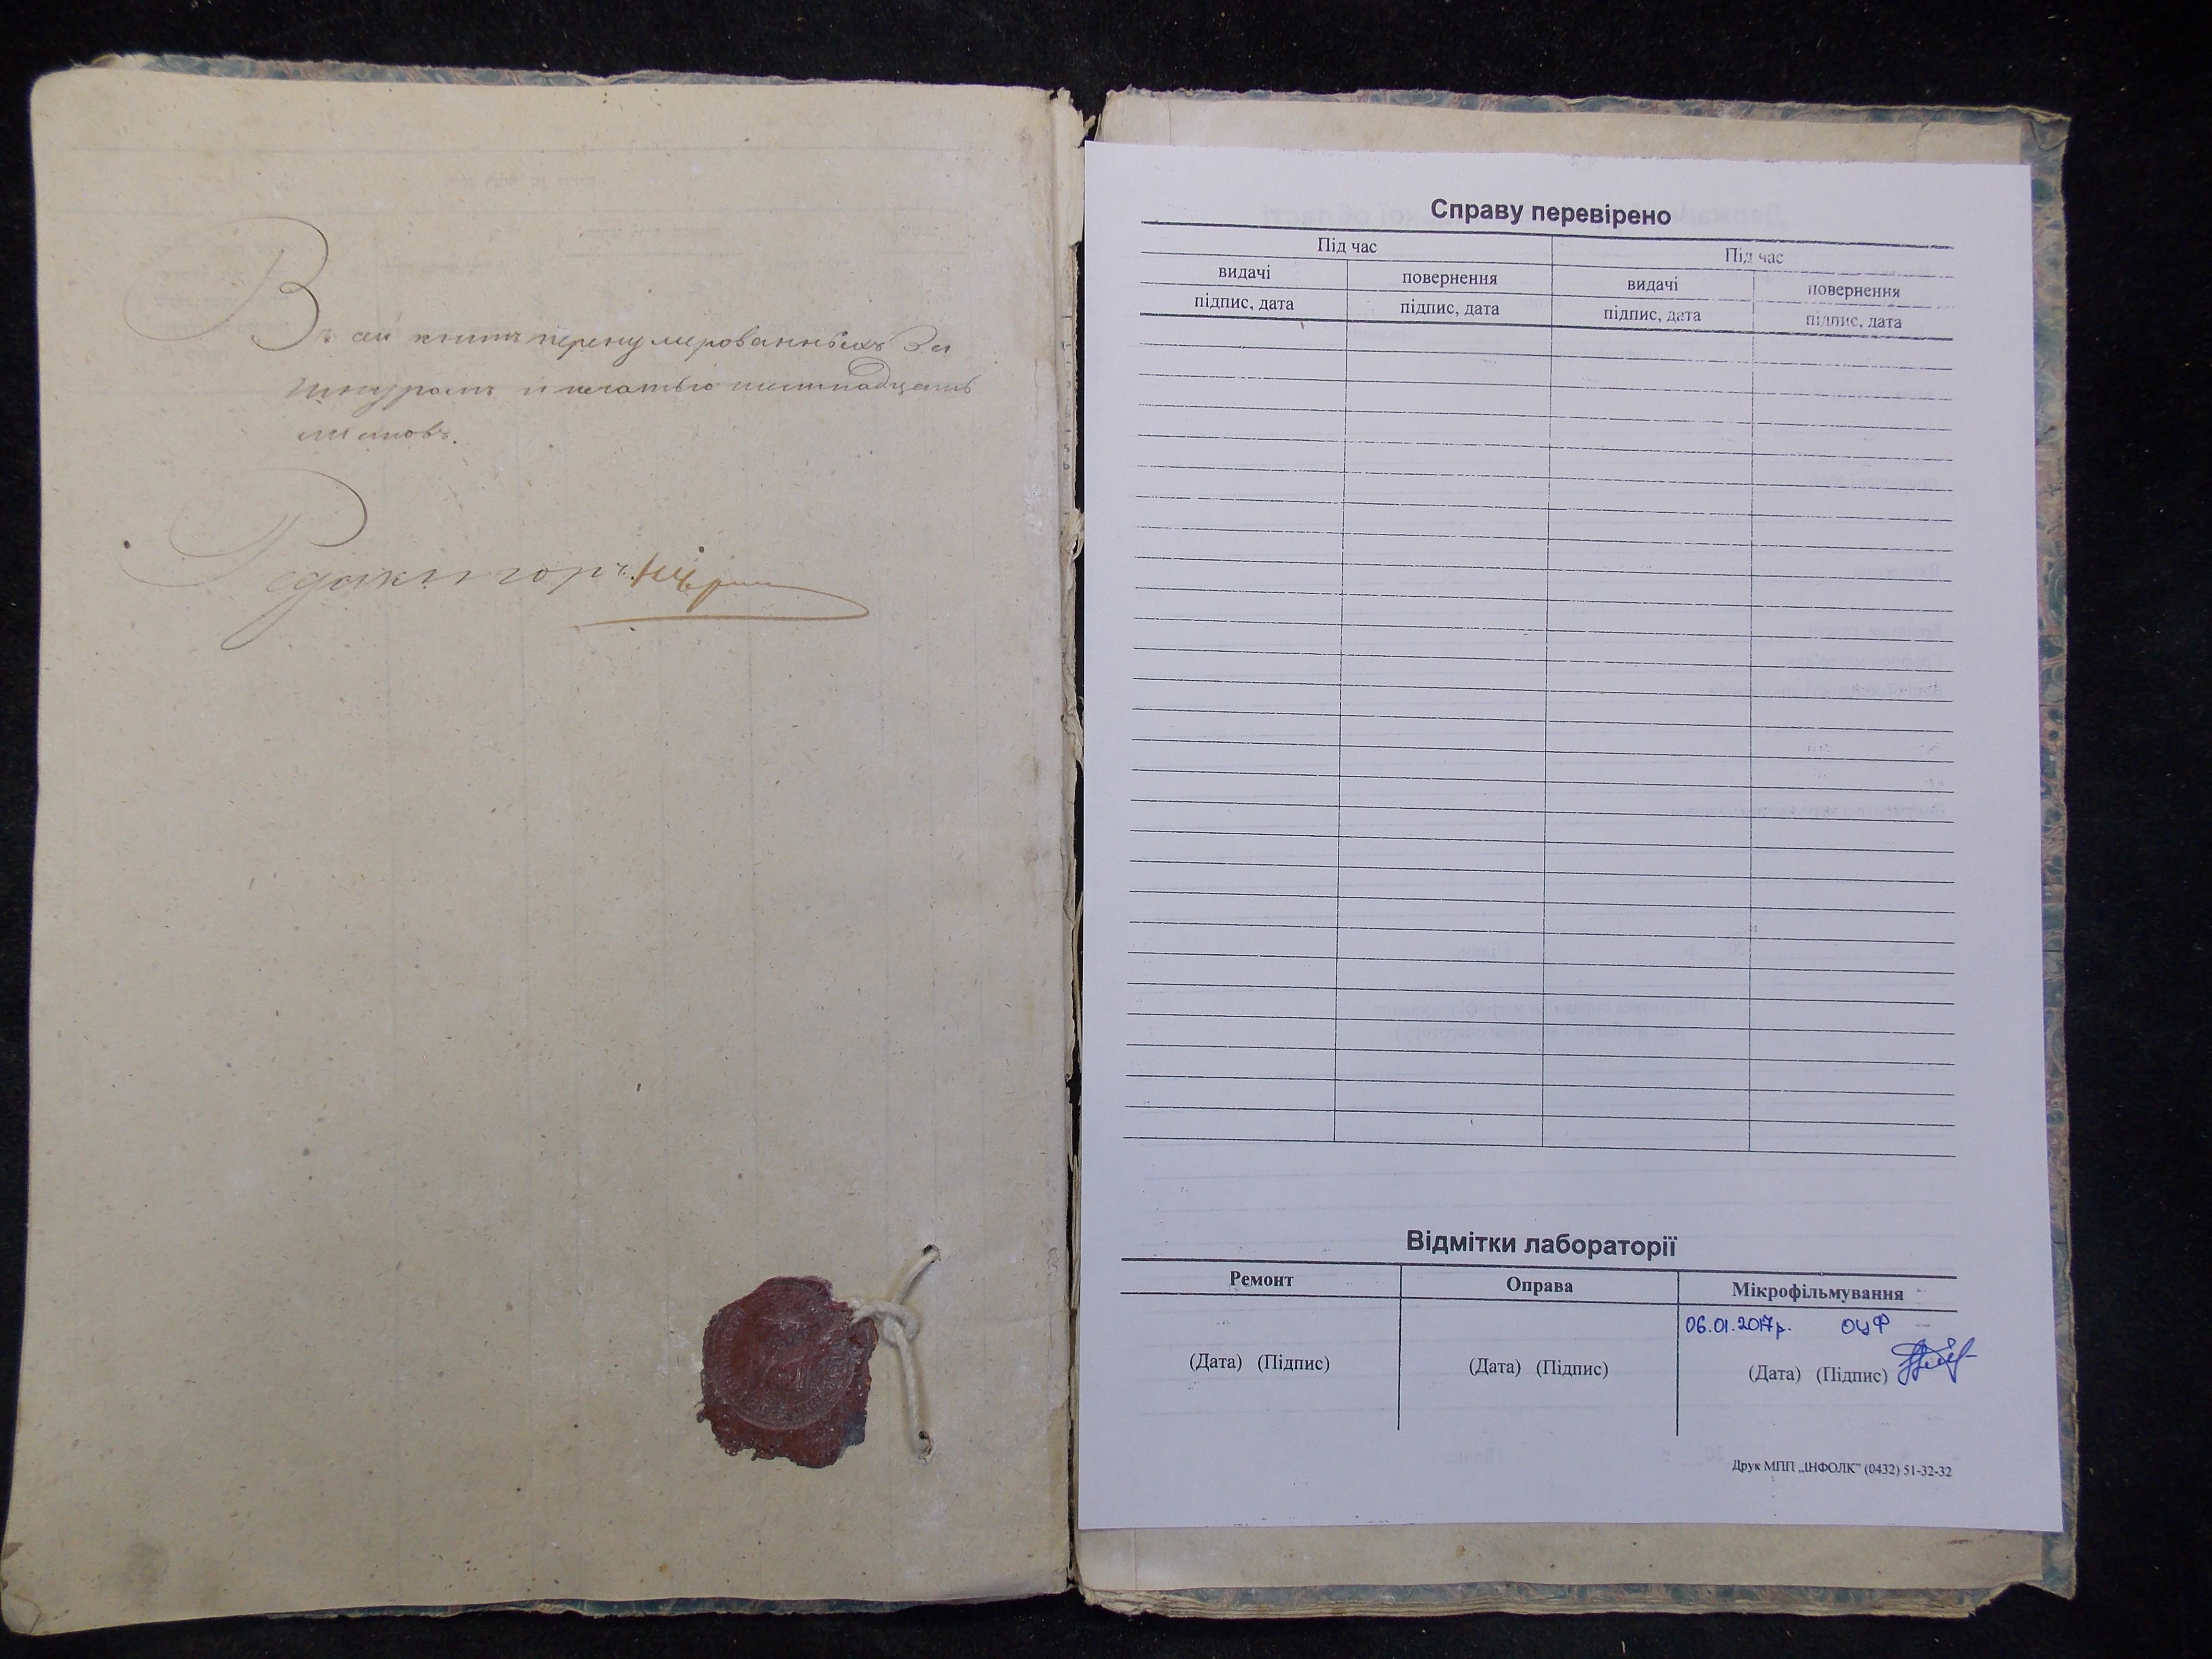 Въ сей книгѣ перенумерованныхъ за
шнуромъ и печатью шестнадцать
листовъ.
Редакторъ
Справу перевірено
Під час Під час
видачі повернення видачі повернення
підпис, дата підпис, дата підпис, дата підпис, дата
Відмітки лабораторії
Ремонт Оправа Мікрофільмування
06.01.2017р. ОЦФ
(Дата) (Підпис) (Дата) (Підпис) (Дата) (Підпис)
Друк МПП „ІНФОЛК" (0432) 51-32-32